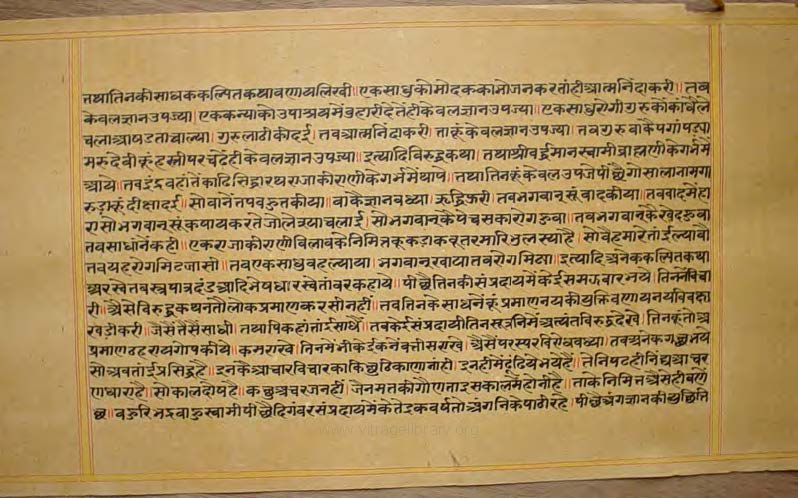 तथा तिनकी साधक कल्पित कथा बणाय लिखी॥ एक साधु को मोदक का भोजन करतां ही आत्मनिंदा करी॥ तब
केवलज्ञान उपज्या। एक कन्या को उपाश्रय में बुहारी देतें ही केवलज्ञान उपज्या॥ एक साधु रोगी गुरु कों कांधै ले
चला आखडता चाल्या। गुरु लाठी की दई। तब आत्मनिंदा करी। ताकूं केवलज्ञान उपज्या। तब गुरु वाकै पगां पड्या
मरुदेवी कूं हस्ती पर चढे ही केवलज्ञान उपज्या॥ इत्यादि विरुद्ध कथा। तथा श्रीवर्द्धमानस्वामी ब्राह्मणी के गर्भ में
आये॥ तब इंद्र वहां तें काढि सिद्धारथ राजा की राणी के गर्भ में थापे॥ तथा तिनकूं केवल उपजे पीछै गोसालानामा ग
रुड्या कूं दीक्षा दई॥ सो वानें तप बहुत कीया॥ वाकै ज्ञान बध्या। ऋद्धि फुरी। तब भगवान सूं वाद कीया॥ तब वाद में हा
र्या सो भगवान सूं कषाय करि तेजोलेश्या चलाई। सो भगवान के पेचस का रोग हुवा॥ तब भगवान कै खेद हुवा
तब साधां नें कही॥ एक राजा की राणी बिलाव के निमित्त कूकडा कबूतर मारि भुलस्यो है॥ सो वे हमारे तांई ल्यावो
तब यह रोग मिट जासी॥ तब एक साधु वह ल्याया। भगवान खाया तब रोग मिट्या॥ इत्यादि अनेक कल्पित कथा
अर स्वेत वस्त्र पात्र दंड आदि भेष धारि स्वेतांबर कहाये॥ पीछै तिनकी संप्रदाय में केई समझवार भये। तिननें विचा
री॥ ऐसे विरुद्ध कथन तौ लोक प्रमाण करसी नहीं॥ तब तिनके साधनें कूं प्रमाण नय की युक्ति बणाय नयविवक्षा
खडी करी॥ जैसें तैसें साधी। तथापि कहां तांई साधै॥ तब केई संप्रदायी तिन सूत्रनि में अत्यंत विरुद्ध देखे। तिनकूं तो अ
प्रमाण ठहराय गोप कीये॥ कम राखे। तिनमें भी केईकनें
सो अब तांई प्रसिद्ध है॥ इनके आचार विचार का किछू ठिकाणा नाही। इनही में ढूंढिये भये हैं॥ ते निपट ही निंद्य आचर
ण धारा है॥ सो कालदोष है॥ कछु अचरज नहीं। जैनमत की गौणता इस काल में होनी है॥ ताके निमित्त ऐसे ही बणें
छ॥ बहुरि भद्रबाहुस्वामी पीछै दिगंबर संप्रदाय में केतेइक वर्ष तो अंगनि के पाठी रहे। पीछे अंगज्ञान की व्युच्छित्ति
www.vitragelibrary.org